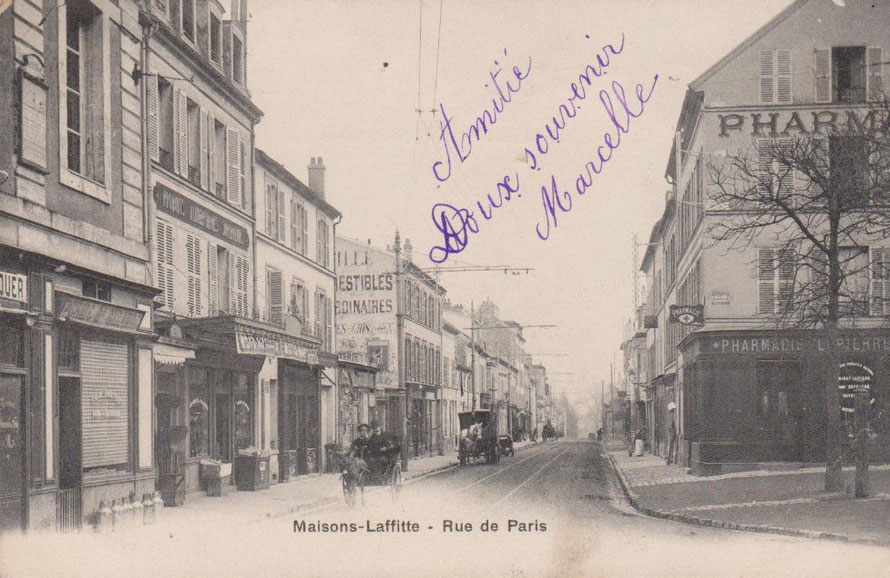 Amitié
Doux souvenir
Marcelle
PHARM
OUER
ILLE
ESTIBLES
RDINAIRES
PHARMACIE LEPIERRE
Maisons-Laffitte - Rue de Paris